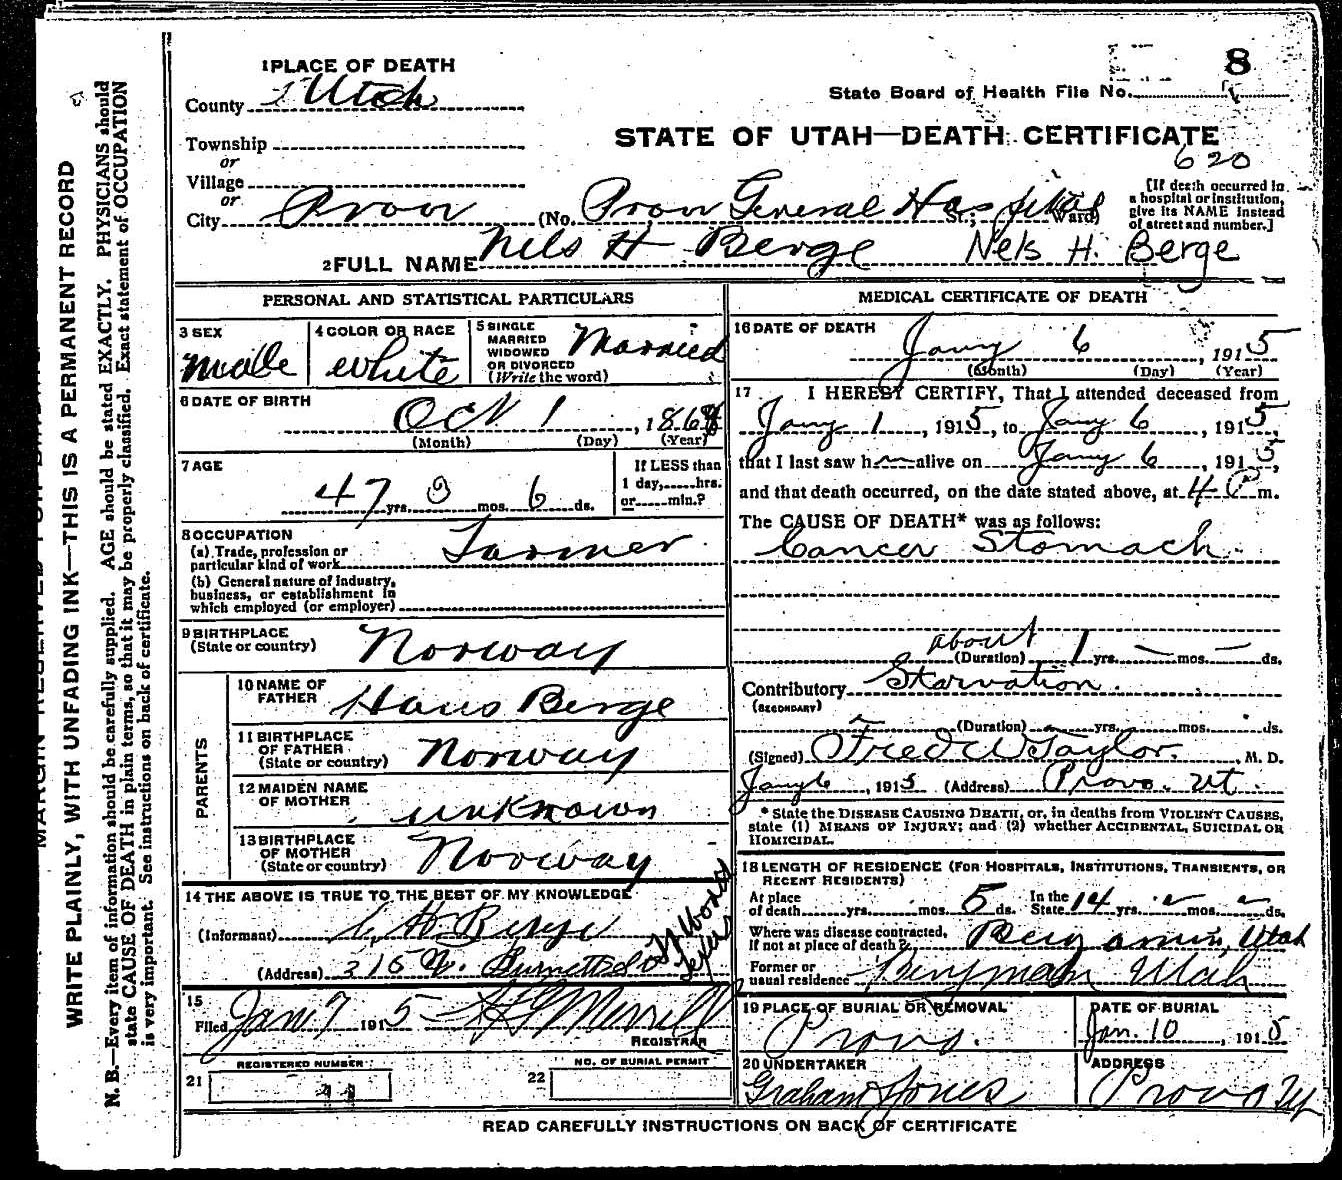 8
1 PLACE OF DEATH
County Utah
State Board of Health File No.
Township
or
Village
or
City Provo (No. Provo General Hospital St.; Ward)
STATE OF UTAH—DEATH CERTIFICATE
620
[If death occurred in
a hospital or institution,
give its NAME instead
of street and number.]
2 FULL NAME Nels H Berge Nels H. Berge
PERSONAL AND STATISTICAL PARTICULARS
3 SEX
Male
4 COLOR OR RACE
White
5 SINGLE
MARRIED
WIDOWED
OR DIVORCED
(Write the word)
Married
6 DATE OF BIRTH
Oct 1, 186
(Month) (Day) (Year)
7 AGE
47 yrs. 3 mos. 6 ds.
If LESS than
1 day,.....hrs.
or.....min.?
8 OCCUPATION
(a) Trade, profession or
particular kind of work Farmer
(b) General nature of industry,
business, or establishment in
which employed (or employer)
9 BIRTHPLACE
(State or country) Norway
PARENTS
10 NAME OF
FATHER Hans Berge
11 BIRTHPLACE
OF FATHER
(State or country) Norway
12 MAIDEN NAME
OF MOTHER unknown
13 BIRTHPLACE
OF MOTHER
(State or country) Norway
14 THE ABOVE IS TRUE TO THE BEST OF MY KNOWLEDGE
(Informant) Berge
(Address) 315
Texas
15
Filed Jan. 7 1915 Merrill
REGISTRAR
REGISTERED NUMBER
21
NO. OF BURIAL PERMIT
22
MEDICAL CERTIFICATE OF DEATH
16 DATE OF DEATH
Jany 6, 1915
(Month) (Day) (Year)
17 I HEREBY CERTIFY, That I attended deceased from
Jany 1, 1915, to Jany 6, 1915,
that I last saw him alive on Jany 6, 1915,
and that death occurred, on the date stated above, at 4 P m.
The CAUSE OF DEATH* was as follows:
Cancer Stomach
about
(Duration) 1 yrs. — mos. — ds.
Contributory Starvation
(SECONDARY)
(Duration) yrs. mos. ds.
(Signed) Fred W Taylor, M. D.
Jany 6, 1915 (Address) Provo. Ut.
* State the DISEASE CAUSING DEATH, or, in deaths from VIOLENT CAUSES,
state (1) MEANS OF INJURY; and (2) whether ACCIDENTAL, SUICIDAL OR
HOMICIDAL.
18 LENGTH OF RESIDENCE (FOR HOSPITALS, INSTITUTIONS, TRANSIENTS, OR
RECENT RESIDENTS)
At place
of death yrs. mos. 5 ds. In the
State 14 yrs. mos. ds.
Where was disease contracted,
If not at place of death? Benjamin, Utah
Former or
usual residence Benjman Utah
19 PLACE OF BURIAL OR REMOVAL
Provo.
DATE OF BURIAL
Jan. 10, 1915
20 UNDERTAKER
Graham & Jones
ADDRESS
Provo Ut
READ CAREFULLY INSTRUCTIONS ON BACK OF CERTIFICATE
WRITE PLAINLY, WITH UNFADING INK—THIS IS A PERMANENT RECORD
N. B.—Every item of information should be carefully supplied. AGE should be stated EXACTLY. PHYSICIANS should
state CAUSE OF DEATH in plain terms, so that it may be properly classified. Exact statement of OCCUPATION
is very important. See instructions on back of certificate.